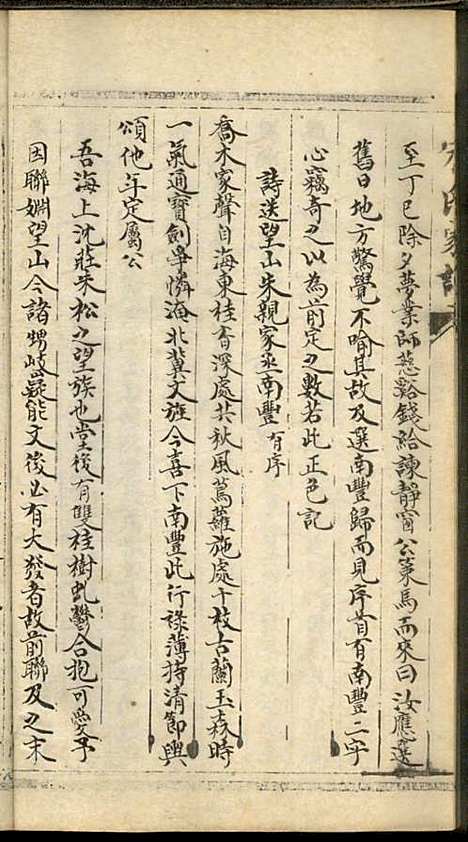 至丁巳除夕夢業師慈谿錢給諫靜窗公策馬而來曰汝應選
舊日地方驚覺不喻其故及選南豐歸而見序首有南豐二字
心竊奇之以為前定之數若此正色記
詩送望山朱親家丞南豐有序
喬木家聲自海東桂香深處共秋風蔦蘿施處千枝古蘭玉森時
一氣通寶劍雙憐海北冀文旌今喜下南豐此行祿薄持清節興
頌他年定屬公
吾海上沈莊朱松之望族也堂後有雙桂樹虬鬱合抱可愛予
因聯姻望山今諸甥岐嶷能文後必有大發者故前聯及之末